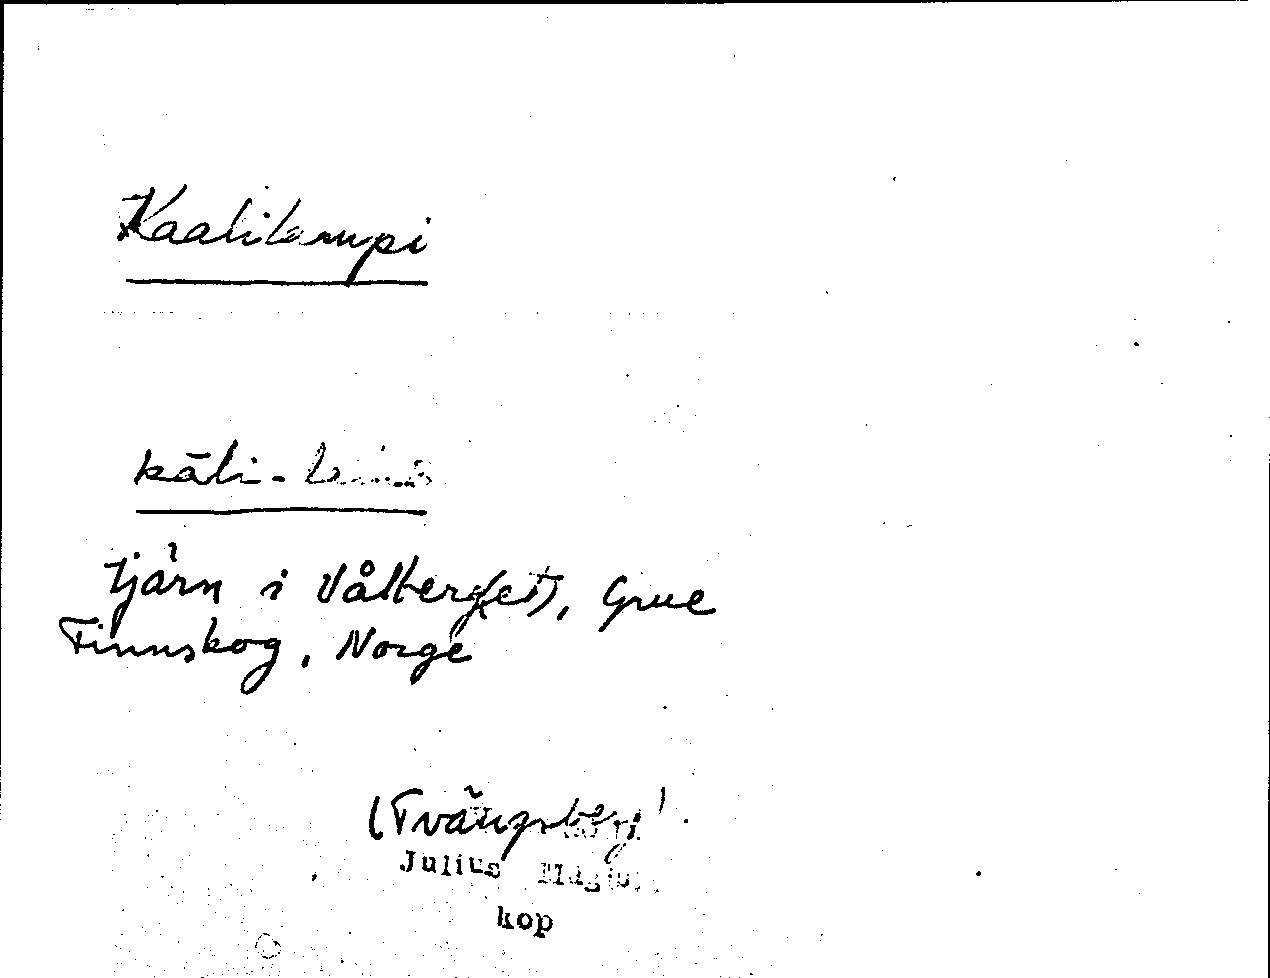 Kaalilampi
kāli-
tjärn i Vålberg(et), Grue
Finnskog, Norge
(Tvängsberg)
Julius
kop